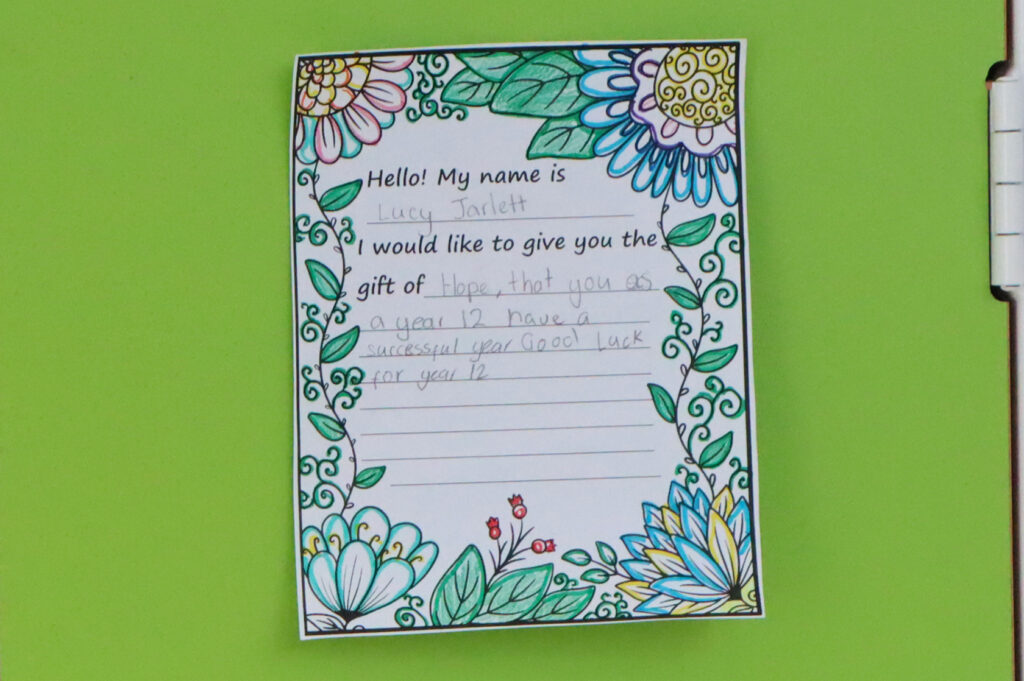 Hello! My name is
Lucy Jarlett
I would like to give you the
gift of Hope, that you as
a year 12 have a
successful year Good Luck
for year 12